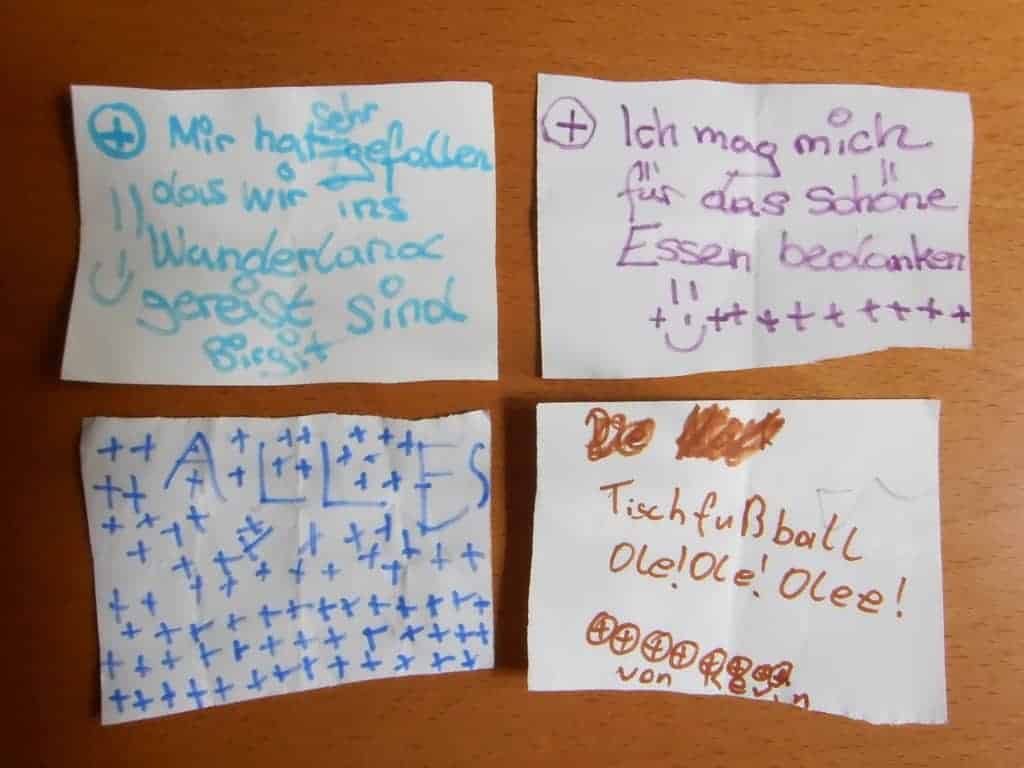 Mir hat sehr gefallen
das wir ins
Wunderland
gereist sind
Birgit
Ich mag mich
für das schöne
Essen bedanken
ALLES
Die
Tischfußball
Ole! Ole! Olee!
von Kevin